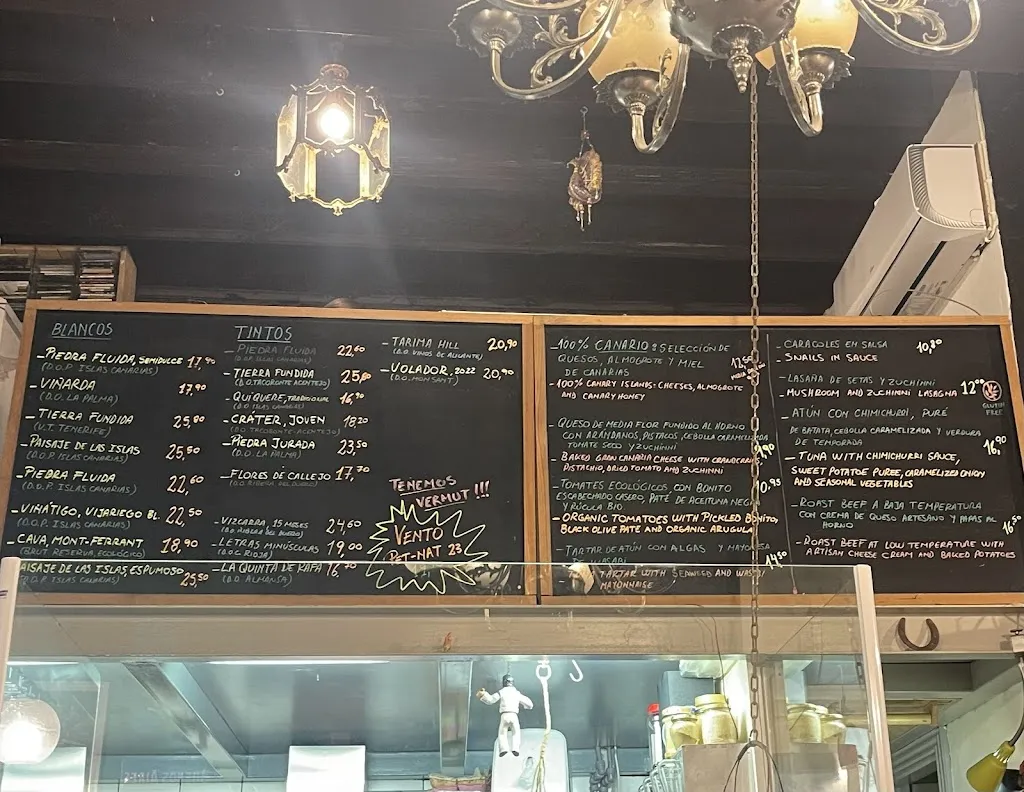 BLANCOS
-PIEDRA FLUIDA, SEMIDULCE 17,90
(D.O.P. ISLAS CANARIAS)
-VIÑARDA 17,90
(D.O. LA PALMA)
-TIERRA FUNDIDA 25,80
(V.T. TENERIFE)
-PAISAJE DE LAS ISLAS 25,50
(D.O.P. ISLAS CANARIAS)
-PIEDRA FLUIDA 22,60
(D.O.P. ISLAS CANARIAS)
-VIÑÁTIGO, VIJARIEGO BL. 22,50
(D.O.P. ISLAS CANARIAS)
-CAVA, MONT-FERRANT 18,90
(BRUT RESERVA, ECOLÓGICO)
PAISAJE DE LAS ISLAS, ESPUMOSO 25,50
(D.O.P. ISLAS CANARIAS)
TINTOS
-PIEDRA FLUIDA 22,60
(D.O.P. ISLAS CANARIAS)
-TIERRA FUNDIDA 25,80
(D.O. TACORONTE ACENTEJO)
-QUIQUERE, TRADICIONAL 16,90
(D.O. ISLAS CANARIAS)
-CRÁTER, JOVEN 18,20
(D.O. TACORONTE-ACENTEJO)
-PIEDRA JURADA 23,50
(D.O. LA PALMA)
-FLORES DE CALLEJO 17,70
(D.O. RIBERA DEL DUERO)
-VIZCARRA, 15 MESES 24,60
(D.O. RIBERA DEL DUERO)
-LETRAS MINÚSCULAS 19,00
(D.O.C. RIOJA)
-LA QUINTA DE RAFA 16,70
(D.O. ALMANSA)
-TARIMA HILL 20,90
(D.O. VINOS DE ALICANTE)
-VOLADOR, 2022 20,90
(D.O. MONSANT)
TENEMOS
VERMUT!!!
VENTO
PET-NAT 23
-100% CANARIO: SELECCIÓN DE
QUESOS, ALMOGROTE Y MIEL
DE CANARIAS
-100% CANARY ISLANDS: CHEESES, ALMOGROTE
AND CANARY HONEY
-QUESO DE MEDIA FLOR FUNDIDO AL HORNO
CON ARÁNDANOS, PISTACHO, CEBOLLA CARAMELIZADA
TOMATE SECO Y ZUCHINNI
-BAKED GRAN CANARIA CHEESE WITH CRANBERRIES,
PISTACHIO, DRIED TOMATO AND ZUCHINNI
-TOMATES ECOLÓGICOS CON BONITO 10,95
ESCABECHADO CASERO, PATÉ DE ACEITUNA NEGRA
Y RÚCULA BIO
-ORGANIC TOMATOES WITH PICKLED BONITO,
BLACK OLIVE PATÉ AND ORGANIC ARUGULA
-TARTAR DE ATÚN CON ALGAS Y MAYONESA
WASABI 14,50
TARTAR WITH SEAWEED AND WASABI
MAYONNAISE
-CARACOLES EN SALSA 10,80
-SNAILS IN SAUCE
-LASAÑA DE SETAS Y ZUCHINNI
-MUSHROOM AND ZUCHINNI LASAGNA 12,00
GLUTEN
FREE
-ATÚN CON CHIMICHURRI, PURÉ
DE BATATA, CEBOLLA CARAMELIZADA Y VERDURA
DE TEMPORADA 16,90
-TUNA WITH CHIMICHURRI SAUCE,
SWEET POTATOE PUREE, CARAMELIZED ONION
AND SEASONAL VEGETABLES
-ROAST BEEF A BAJA TEMPERATURA
CON CREMA DE QUESO ARTESANO Y PAPAS AL
HORNO 16,50
-ROAST BEEF AT LOW TEMPERATURE WITH
ARTISAN CHEESE CREAM AND BAKED POTATOES